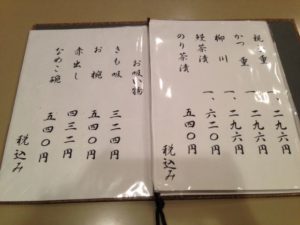 重 一、二九六円
かつ重 一、二九六円
柳川 一、二九六円
茶漬 一、六二〇円
のり茶漬 五四〇円
税込み
お吸い物
きも吸 三二四円
お椀 五四〇円
赤出し 四三二円
なめこ椀 五四〇円
税込み